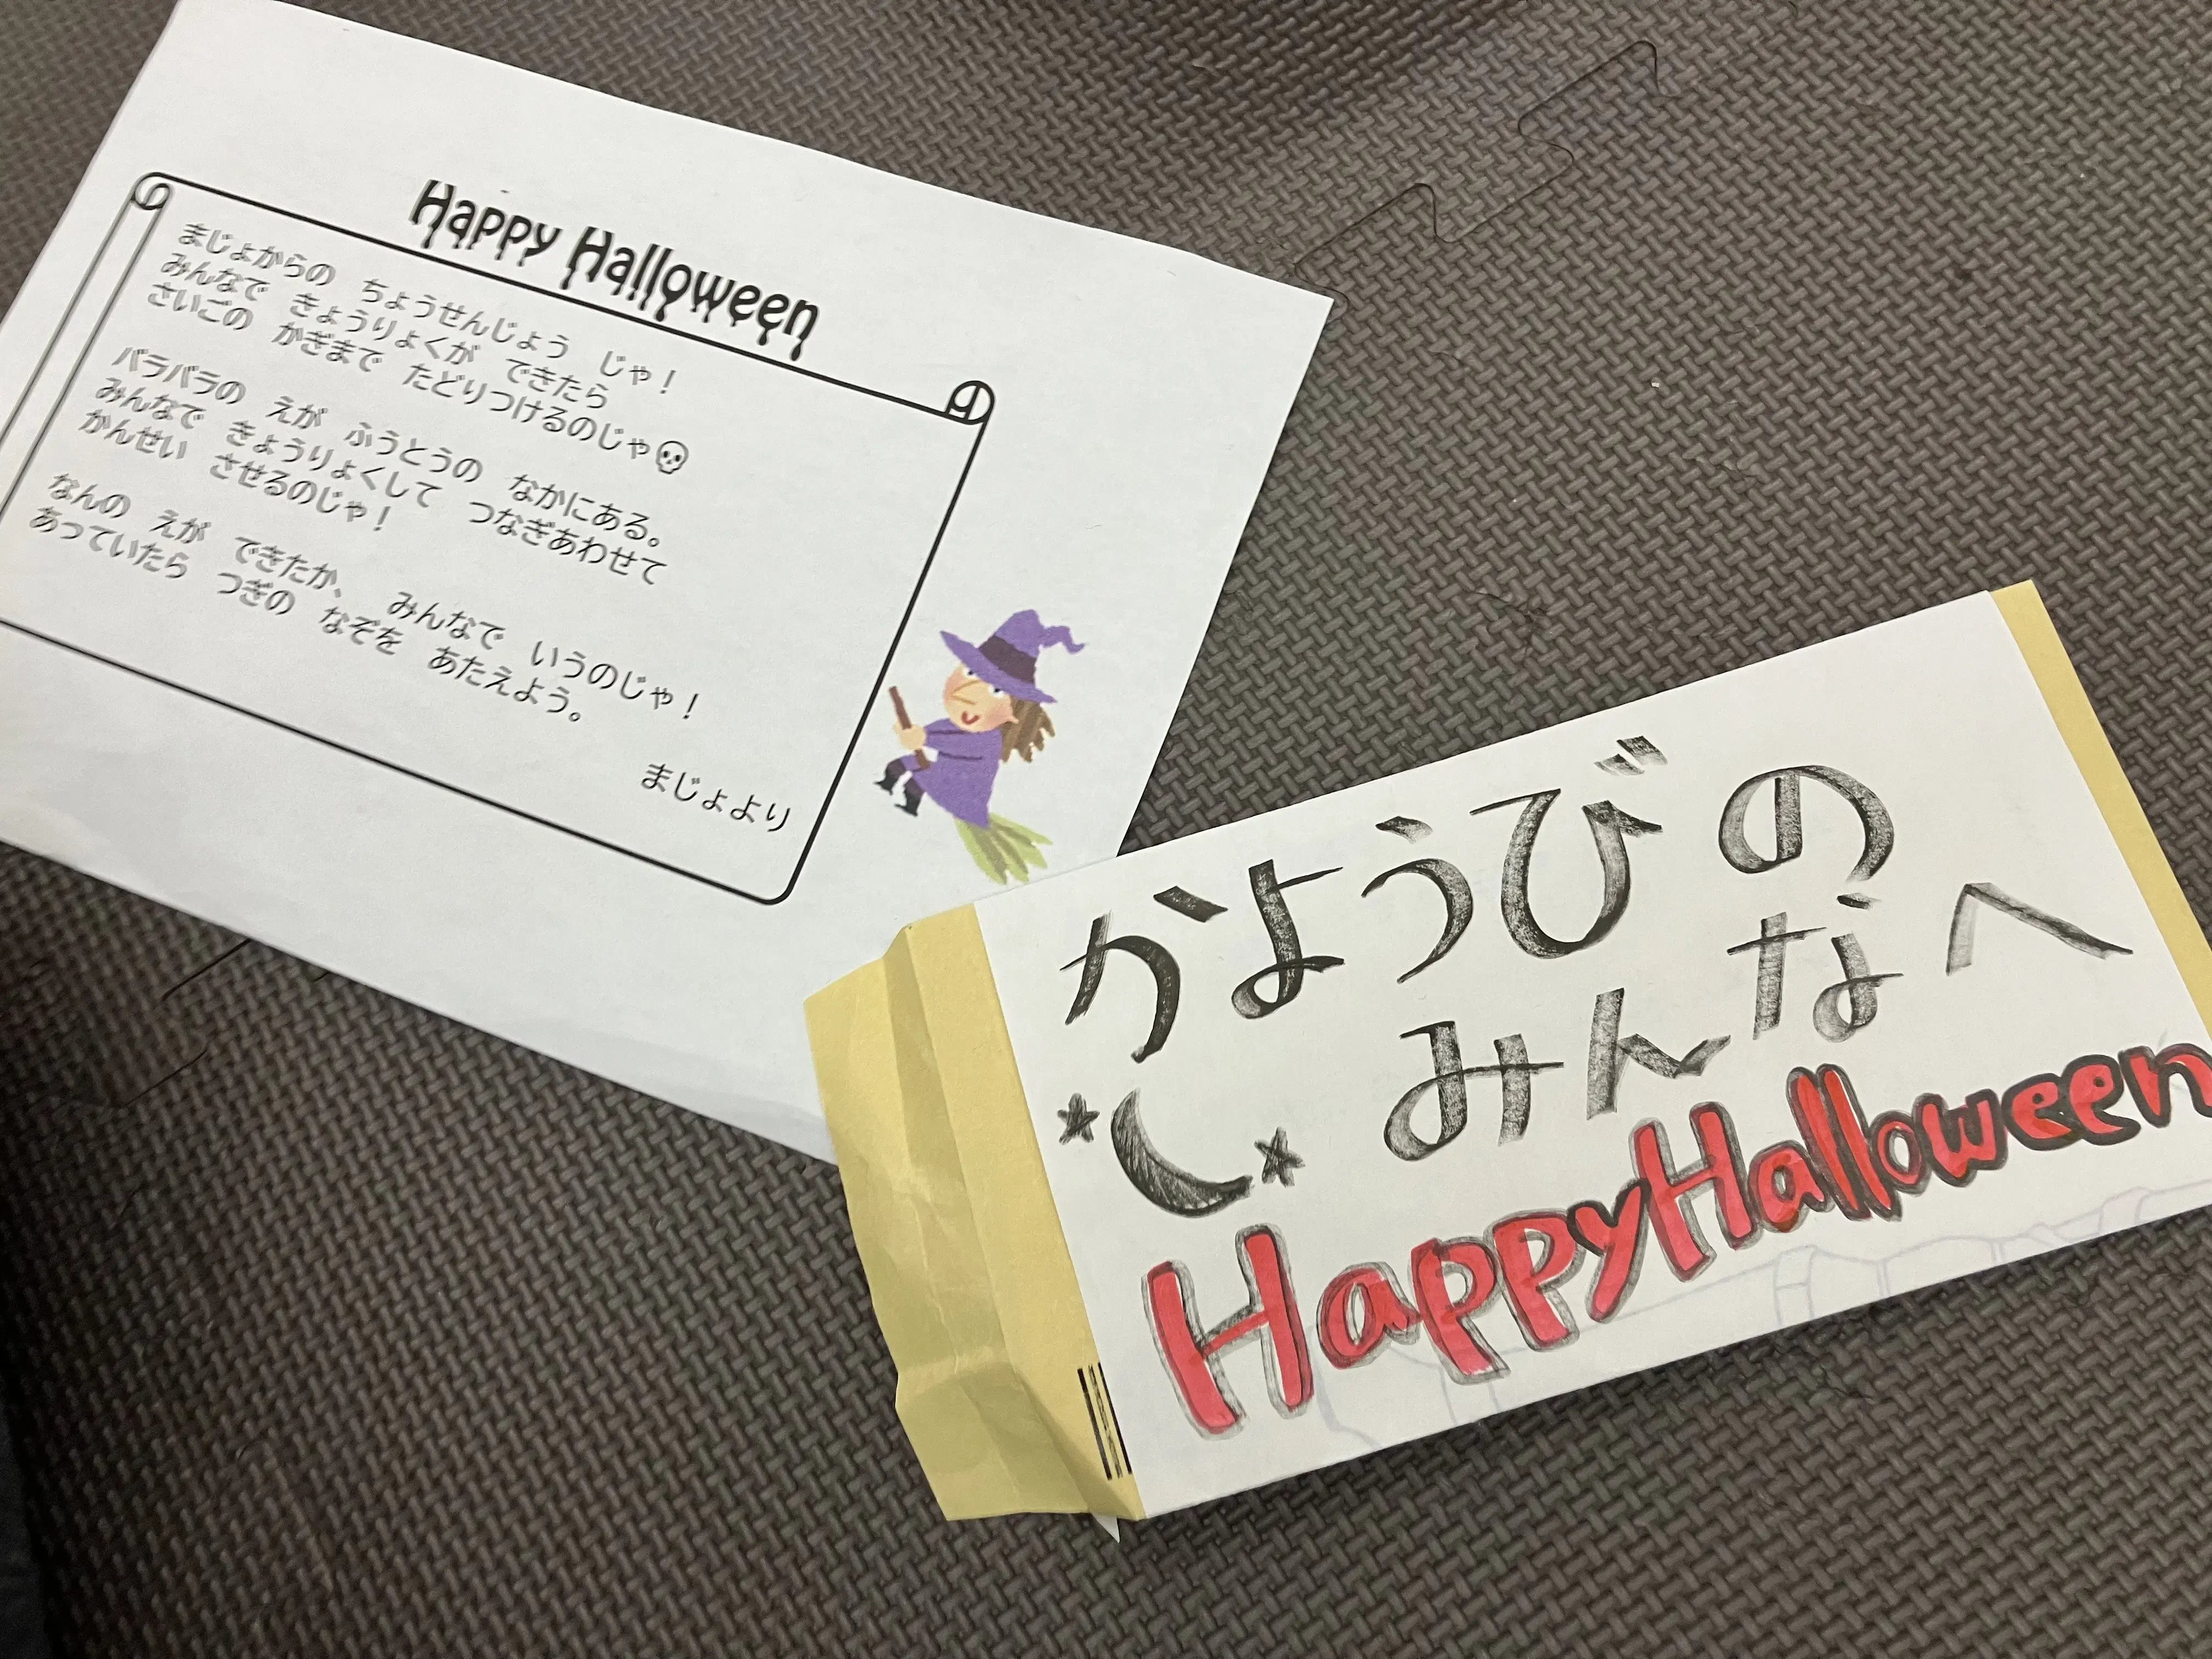 Happy Halloween
まじょからの　ちょうせんじょう　じゃ！
みんなで　きょうりょくが　できたら
さいごの　かぎまで　たどりつけるのじゃ💀
バラバラの　えが　ふうとうの　なかにある。
みんなで　きょうりょくして　つなぎあわせて
かんせい　させるのじゃ！
なんの　えが　できたか、　みんなで　いうのじゃ！
あっていたら　つぎの　なぞを　あたえよう。
まじょより
かようびの
みんなへ
HappyHalloween